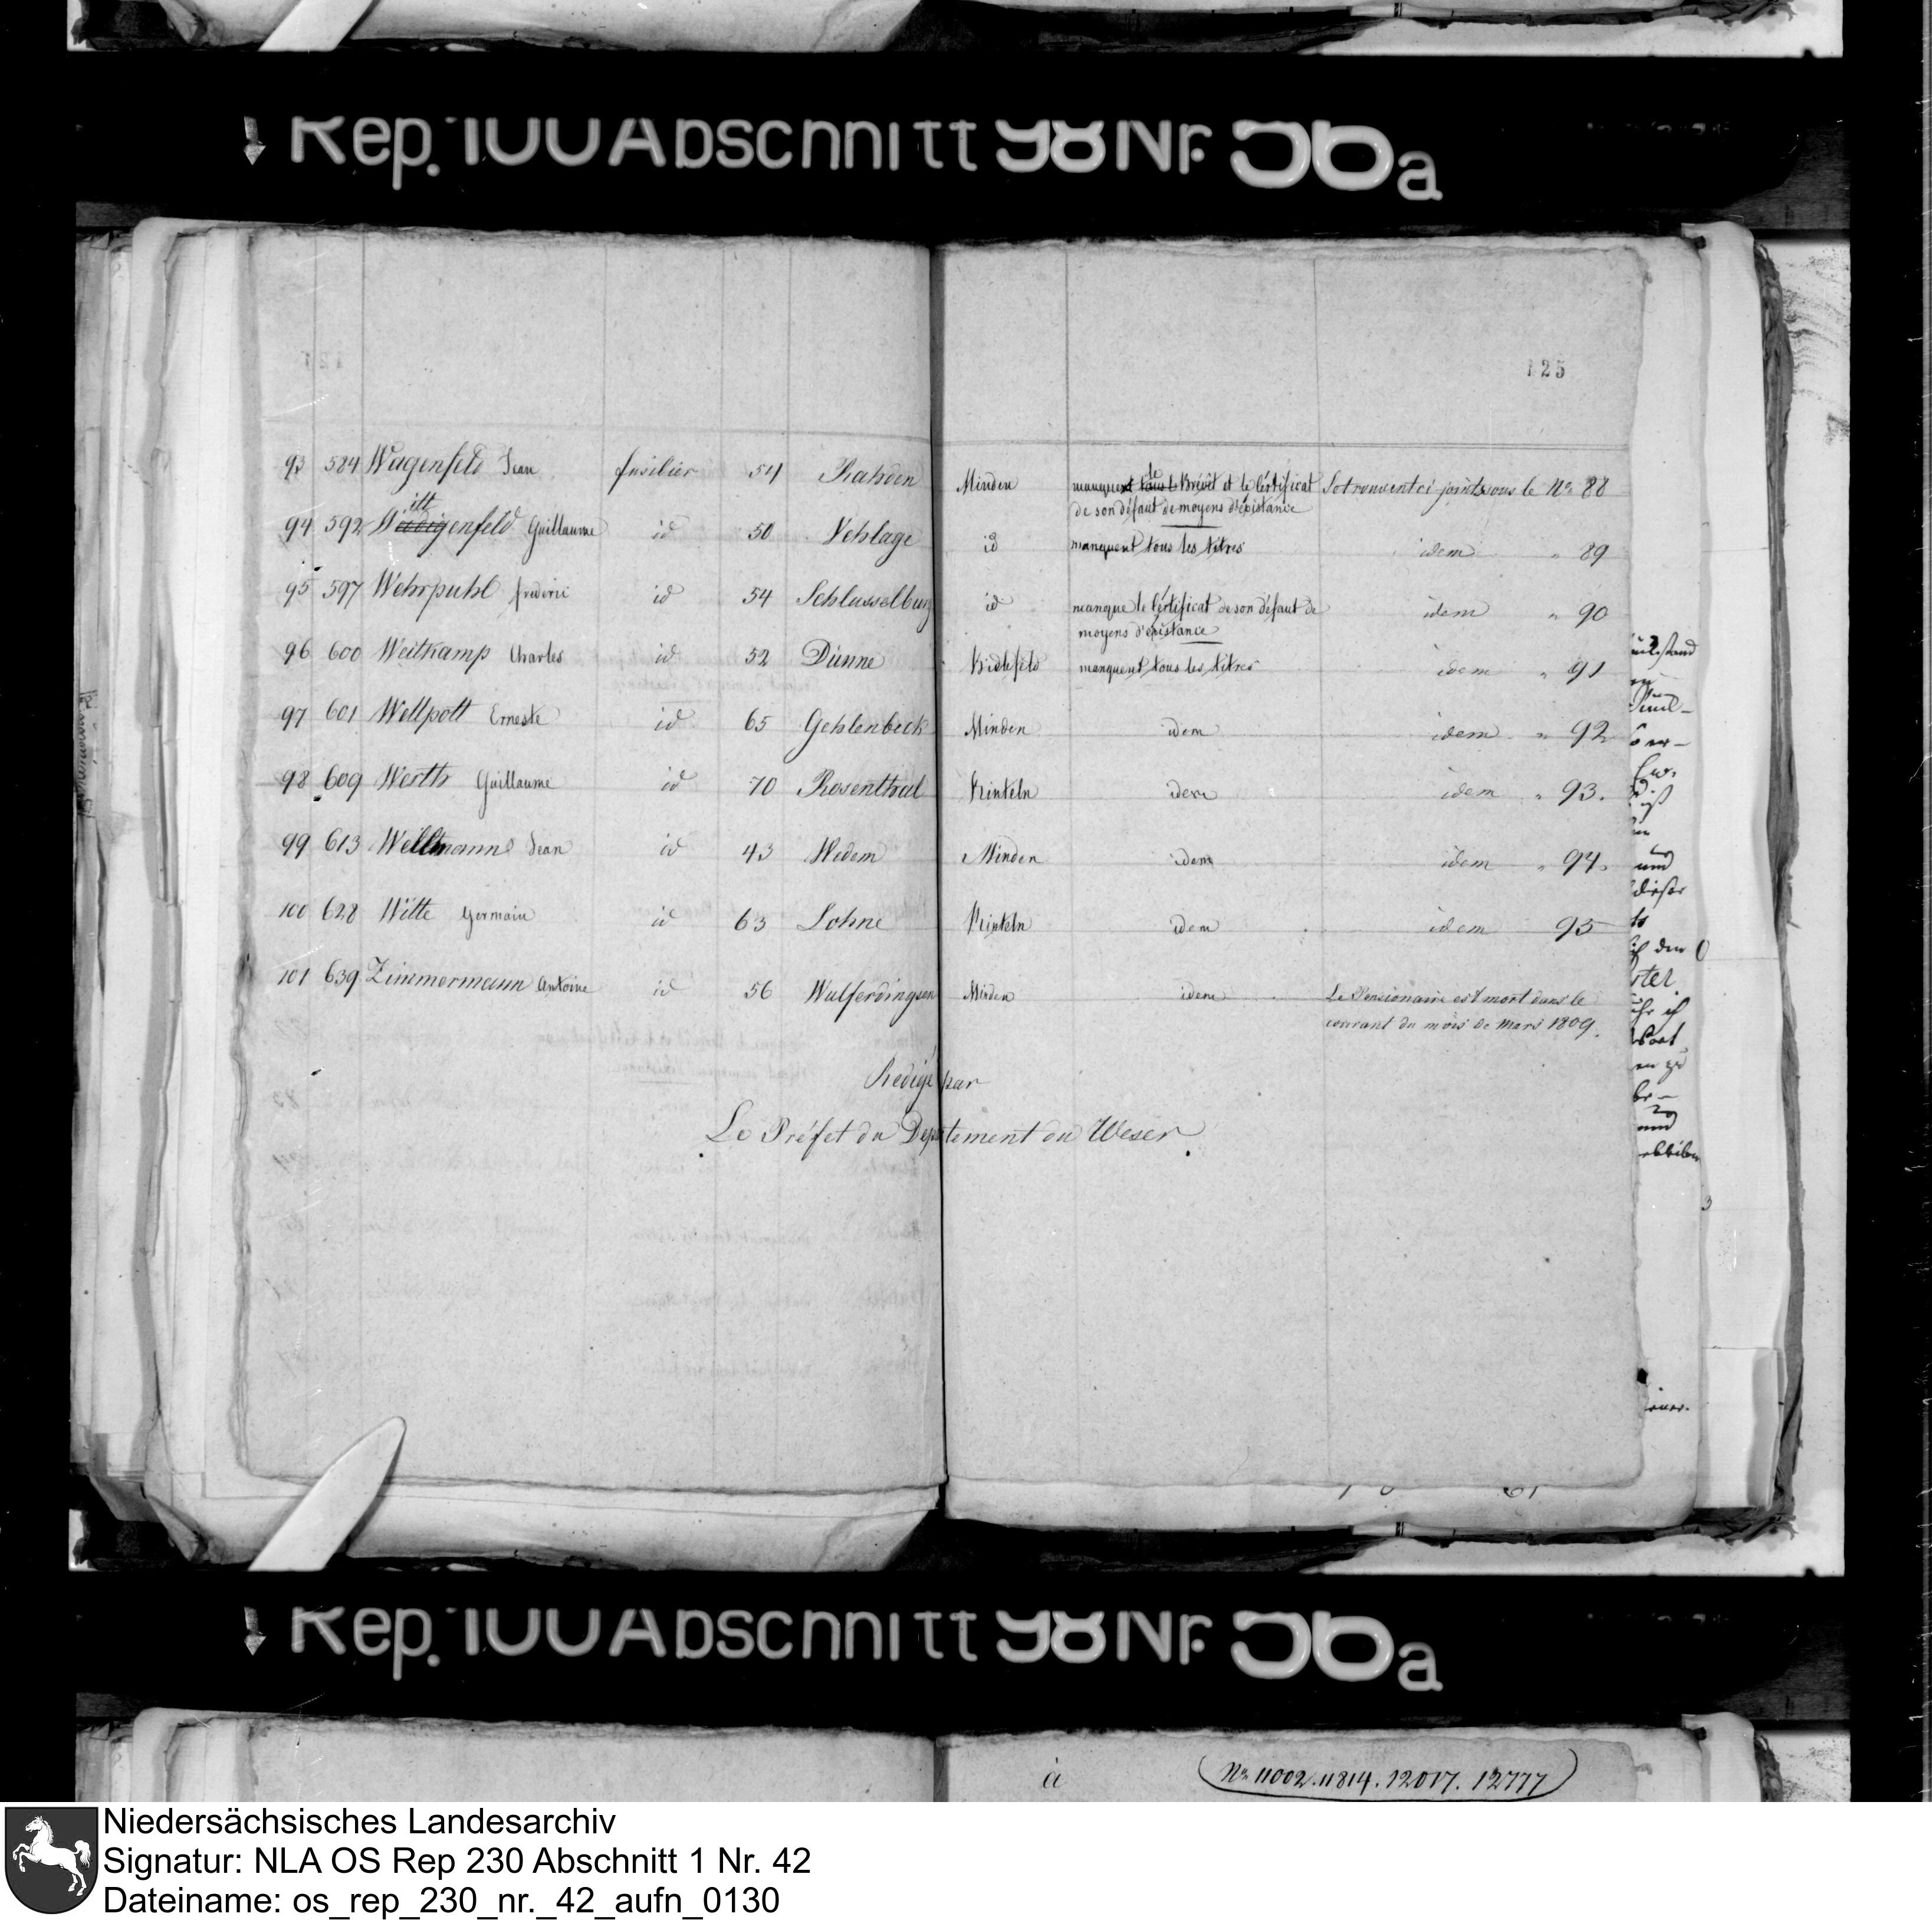 Rep. 100 Abschnitt 98 Nr. 56a
125
93 584 Wagenfeld Jean fusilier 54 Rahden Minden manquent tous le Brévèt et le Certificat Se trouvent ci joints sous le No 88
de son défaut de moyens d'existance
itt
94 592 Wadigenfeld Guillaume id 50 Vehlage id manquent tous les titres idem " 89
95 597 Wehrpuhl frederic id 54 Schlusselburg id manque le Certificat de son défaut de idem " 90
moyens d'existance
96 600 Weitkamp Charles id 52 Dünne Bielefeld manquent tous les titres idem " 91
97 601 Wellpott Erneste id 65 Gehlenbeck Minden idem idem " 92
98 609 Werth Guillaume id 70 Rosenthal Rinteln idem idem " 93.
99 613 Wellmann Jean id 43 Wedem Minden idem idem " 94.
100 628 Witte Germain id 63 Lohne Rinteln idem idem 95
101 639 Zimmermann Antoine id 56 Wulferdingsen Minden idem Le Pensionaire est mort dans le
courant du mois de Mars 1809.
Redigé par
Le Préfet du Departement du Weser
Rep. 100 Abschnitt 98 Nr. 56a
à
No 11002. 11814. 12017. 12777
Niedersächsisches Landesarchiv
Signatur: NLA OS Rep 230 Abschnitt 1 Nr. 42
Dateiname: os_rep_230_nr._42_aufn_0130